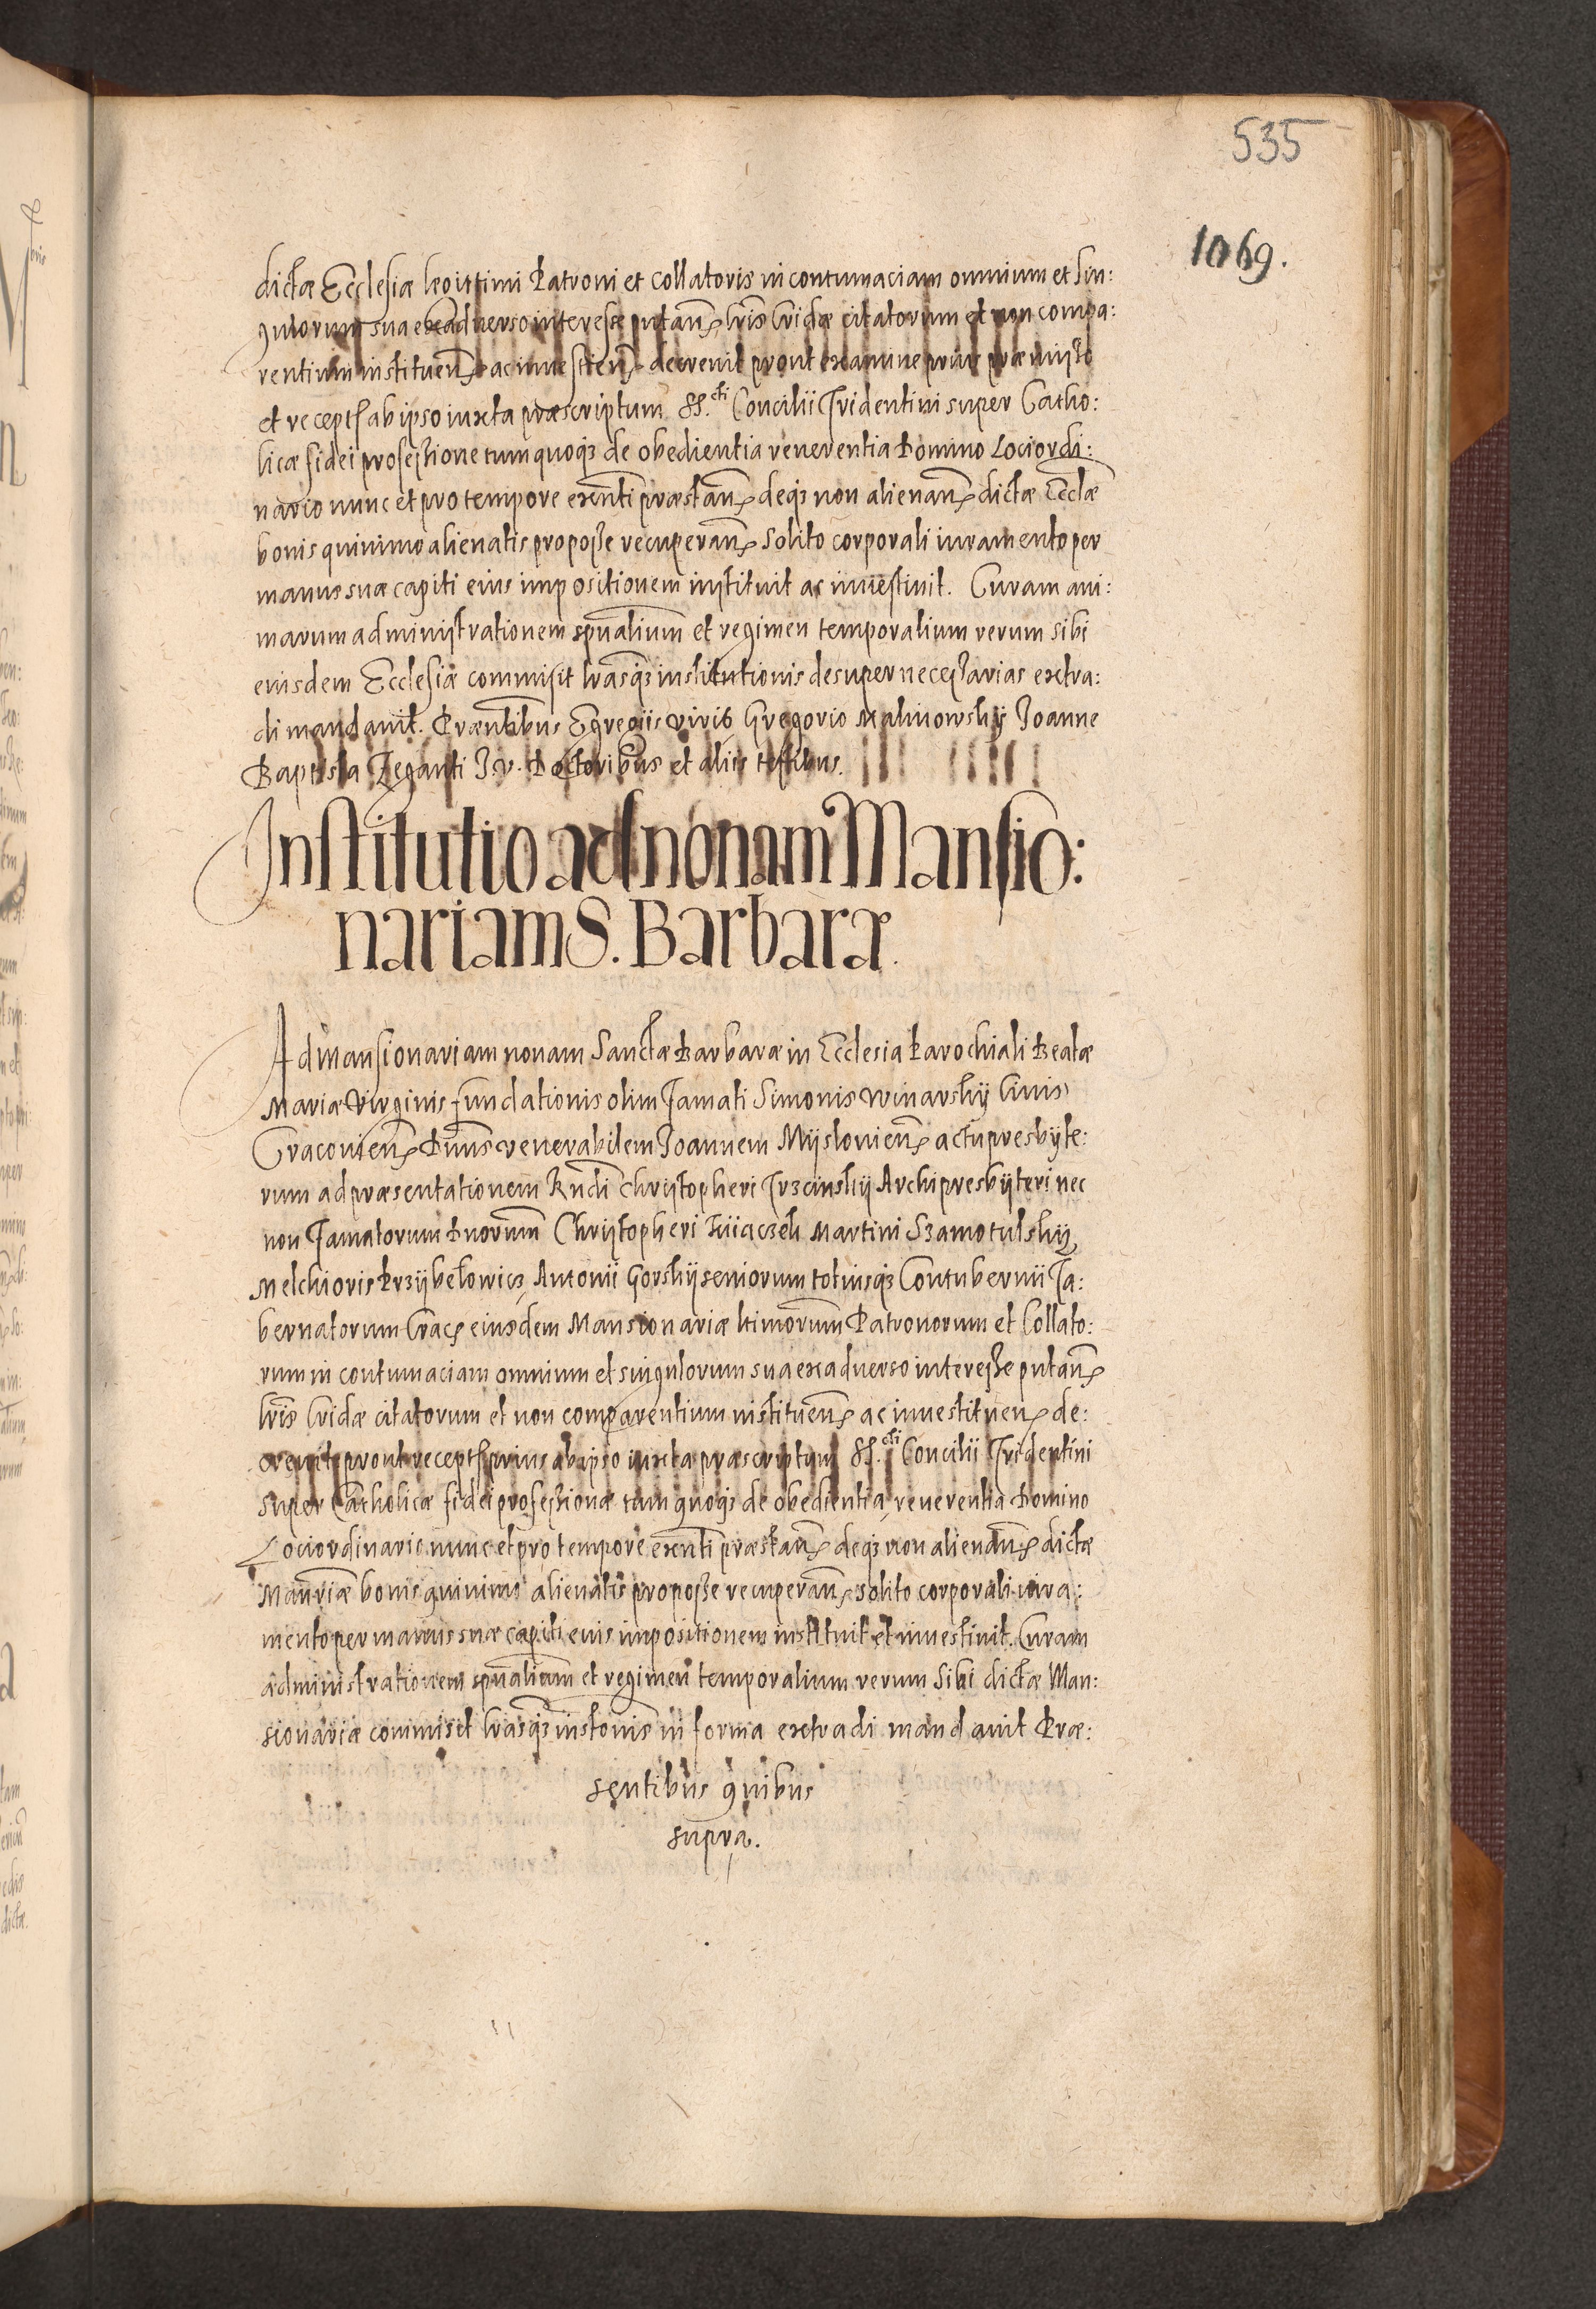 535
1069.
dictæ Ecclesiæ legittimi Patroni et collatoris in contumaciam omnium et sin:
gulorum sua exadverso interesse putan̄ lr̄is Cridæ citatorum et non compa:
rentium instituen̄ ac investien̄ decrevit prout examine prius præmisso
et recepta ab ipso iuxta præscriptum SS.cti Concilii Tridentini super Catho:
licæ fidei professione tum quoqȝ de obedientia reverentia Domino Lociordi:
nario nunc et pro tempore exen̄ti præstan̄ deqȝ non alienan̄ dictæ Eccl̄æ
bonis quinimo alienatis pro posse recuperan̄ solito corporali iuramento per
manus suæ capiti eius impositionem instituit ac investivit. Curam ani:
marum administrationem spūalium et regimen temporalium rerum sibi
eiusdem Ecclesiæ commisit lr̄asqȝ institutionis desuper necessarias extra:
di mandavit. Præn̄tibus Egregiis viris Gregorio Malinowsky Joanne
Baptista Zeganti J. v. Doctoribus et aliis testibus.
Institutio ad nonam Mansio:
nariam S. Barbaræ.
Ad mansionariam nonam Sanctæ Barbaræ in Ecclesia Parochiali Beatæ
Mariæ Virginis fundationis olim famati Simonis Winarsky Civis
Cracovien̄ D̄nus venerabilem Joannem Myslovien̄ actu presbyte:
rum ad præsentationem Rn̄di Christopheri Trzcinsky Archipresbyteri nec
non famatorum Dnorum Christopheri Martini Szamotulsky
Melchioris Przybełowicz, Antonii Gorsky seniorum totiusqȝ Contubernii Ta:
bernatorum Crac̄ eiusdem Mansionariæ ltimorum Patronorum et Collato:
rum in contumaciam omnium et singulorum sua exadverso interesse putan̄
lr̄is Cridæ citatorum et non comparentium instituen̄ ac investituen̄ de:
crevit prout recepta prius ab ipso iuxta præscriptum SS.cti Concilii Tridentini
super Catholicæ fidei professione tum quoqȝ de obedientia, reverentia Domino
Lociordinario nunc et pro tempore exen̄ti præstan̄ deqȝ non alienan̄ dictæ
Man̄riæ bonis quinimo alienatis pro posse recuperan̄ solito corporali iura:
mento per manus suæ capiti eius impositionem instituit et investivit. Curam
administrationem spūalium et regimen temporalium rerum sibi dictæ Man:
sionariæ commisit lr̄asqȝ insto̅nis in forma extradi mandavit Præ:
sentibus quibus
supra.